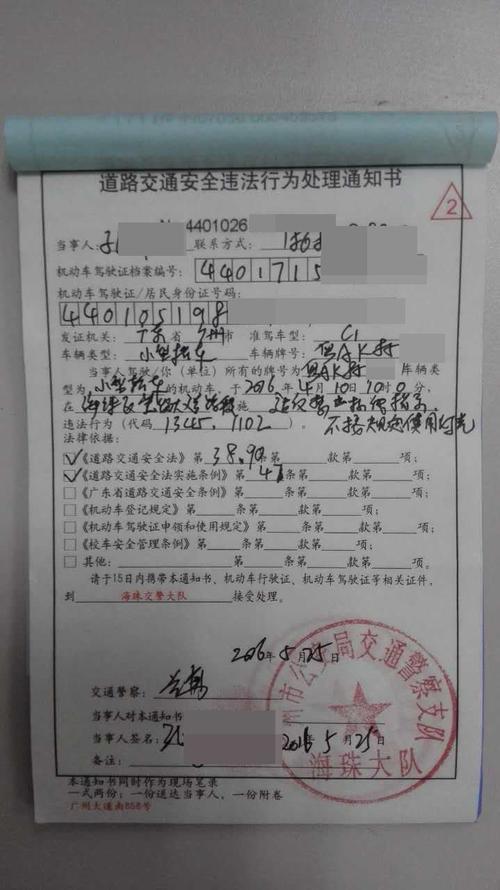 道路交通安全违法行为处理通知书
2
No 4401026
当事人: 联系方式: 1
机动车驾驶证档案编号: 4401715
机动车驾驶证/居民身份证号码:
440105198
发证机关: 广东省 广州市 准驾车型: C1
车辆类型: 小型轿车 车辆牌号: 粤AK
当事人驾驶/你(单位)所有的牌号为粤AK 车辆类
型为小型轿车的机动车,于2016年4月10日10时0分,
在海珠区 实施 违反禁止标线指示
违法行为(代码1345、1102)。不按规定使用灯光
法律依据:
☑《道路交通安全法》第38、90条第 款第 项;
☑《道路交通安全法实施条例》第47条第 款第 项;
□《广东省道路交通安全条例》第 条第 款第 项;
□《机动车登记规定》第 条第 款第 项;
□《机动车驾驶证申领和使用规定》第 条第 款第 项;
□《校车安全管理条例》第 条第 款第 项;
□ 其他: 第 条第 款第 项;
请于15日内携带本通知书、机动车行驶证、机动车驾驶证等相关证件,
到 海珠交警大队 接受处理。
2016年5月25日
州市公安局交通警察支队
海珠大队
交通警察:
当事人对本通知书
当事人签名: 2016年5月25日
备注:
本通知书同时作为现场笔录
一式两份: 一份送达当事人, 一份附卷
广州大道南858号